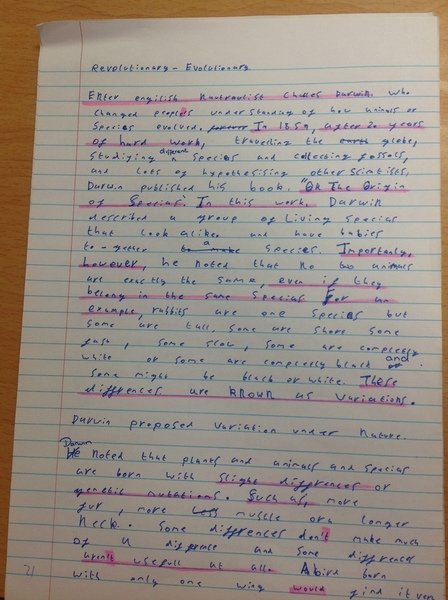 Revolutionary - Evolutionary
Enter engilish Nautraulist Challes Darwin. Who
changed peoples understanding of how animals or
Species evolved. In 1859, after 20 years
of hard work, travelling the earth globe,
studiying different species and collecting fossals,
and lots of hypothesising other scientists,
Darwin published his book. "On The Origin
of Species". In this work, Darwin
described a group of Living species
that look alike and have babies
to-gether a species. Importanly,
however, he noted that no two animals
are exactly the same, even if they
belong in the same species For an
example, rabbits are one species but
some are tall, some are short some
fast, some slow, some are completely
white or some are completly black and
some might be black or white. These
diffrences are known as variations.
Darwin proposed variation under Nature.
Darwin
He Noted that plants and animals and species
are born with slight diffrences or
genetic mutations. Such as, more
fur, more less muscle or a longer
Neck. Some diffrences don't make much
of a diffrence and some diffrences
aren't usefull at all. A bird born
with only one wing would find it very
21